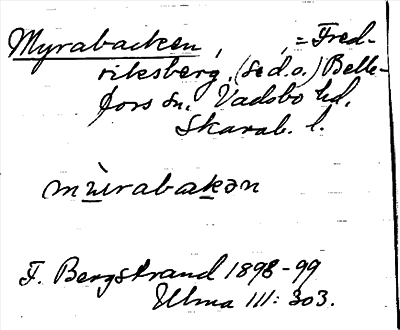 Myrabacken, , = Fred-
riksberg, (se d.o.) Belle-
fors sn. Vadsbo hd.
Skarab. l.
mùrabakən
F. Bergstrand 1898-99
Ulma 111: 303.